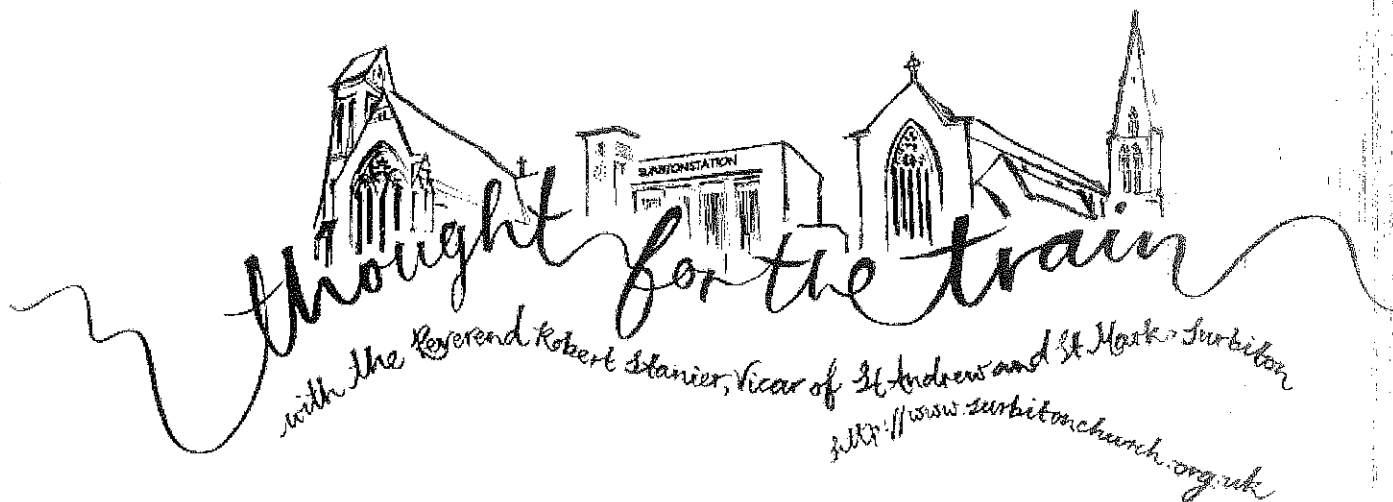 SURBITON STATION
thought for the train
with the Reverend Robert Stanier, Vicar of St Andrew and St Mark, Surbiton
http://www.surbitonchurch.org.uk